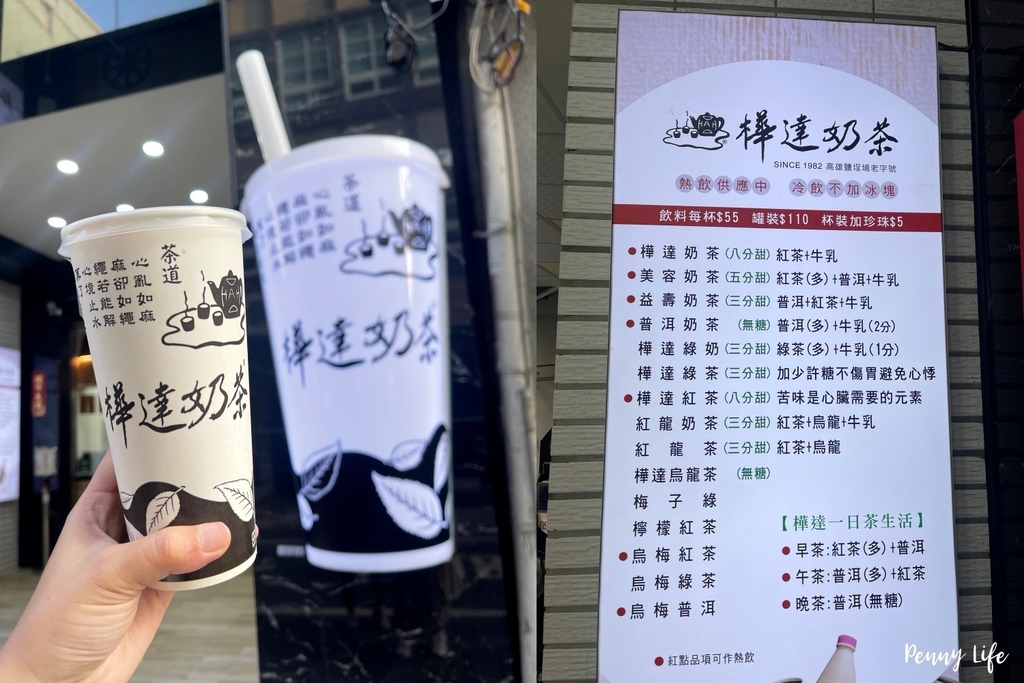 茶道
心亂如麻
麻卻如繩
繩若能解
心境止水
樺達奶茶
茶道
樺達奶茶
HAH
樺達奶茶
SINCE 1982 高雄鹽埕埔老字號
熱飲供應中 冷飲不加冰塊
飲料每杯$55 罐裝$110 杯裝加珍珠$5
●樺達奶茶(八分甜) 紅茶+牛乳
●美容奶茶(五分甜) 紅茶(多)+普洱+牛乳
●益壽奶茶(三分甜) 普洱+紅茶+牛乳
●普洱奶茶(無糖) 普洱(多)+牛乳(2分)
樺達綠奶(三分甜) 綠茶(多)+牛乳(1分)
樺達綠茶(三分甜) 加少許糖不傷胃避免心悸
●樺達紅茶(八分甜) 苦味是心臟需要的元素
紅龍奶茶(三分甜) 紅茶+烏龍+牛乳
紅龍茶(三分甜) 紅茶+烏龍
樺達烏龍茶(無糖)
梅子綠
檸檬紅茶
●烏梅紅茶
烏梅綠茶
●烏梅普洱
【樺達一日茶生活】
●早茶:紅茶(多)+普洱
●午茶:普洱(多)+紅茶
●晚茶:普洱(無糖)
●紅點品項可作熱飲
Penny Life